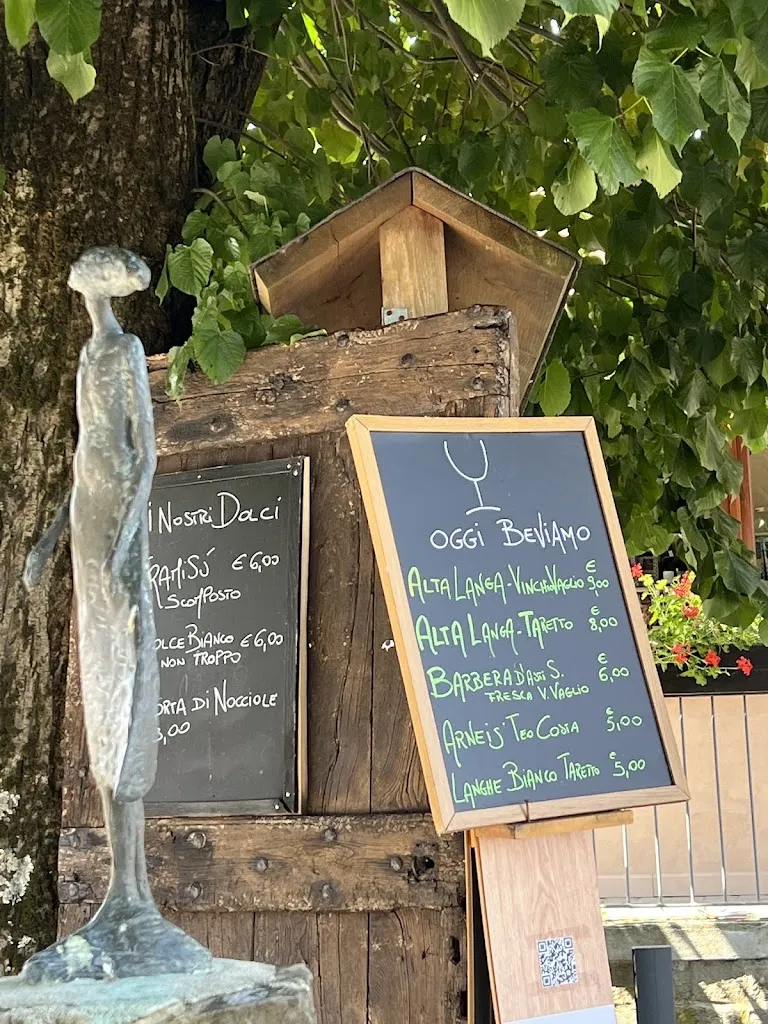 I NOSTRI DOLCI
RAMISÙ €6,00
SCOMPOSTO
OLCE BIANCO €6,00
NON TROPPO
ORTA DI NOCCIOLE
,00
OGGI BEVIAMO
ALTA LANGA-VINCHIOVAGLIO € 9,00
ALTA LANGA-TARETTO € 8,00
BARBERA D'ASTI S. € 6,00
FRESCA V.VAGLIO
ARNEIS TEO COSTA € 5,00
LANGHE BIANCO TARETTO € 5,00